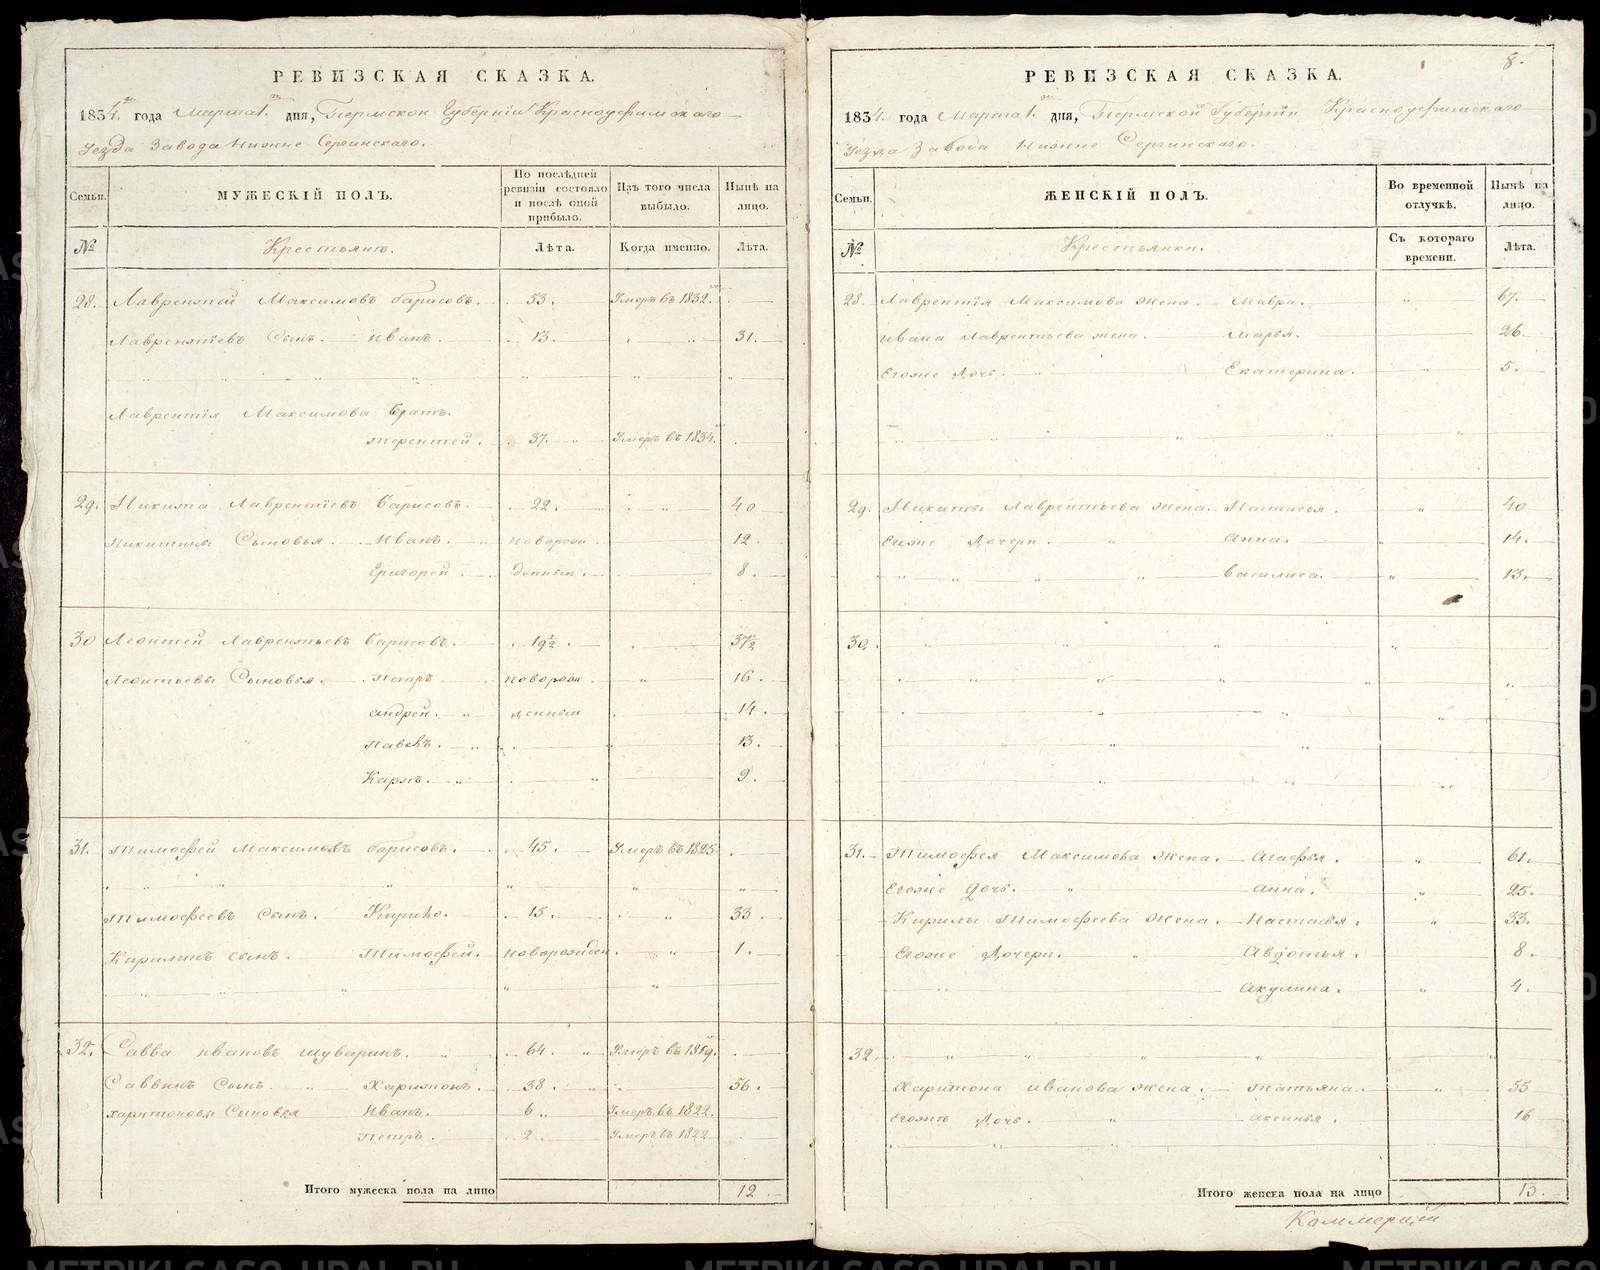 РЕВИЗСКАЯ СКАЗКА.
1834. года Марта 1. дня, Пермской Губернiи Красноуфимскаго
Уезда Завода Нижне Сергинскаго.
Семьи. МУЖЕСКIЙ ПОЛЪ. По послѣдней ревизiи состояло и послѣ оной прибыло. Изъ того числа выбыло. Нынѣ на лицо.
№ Крестьянъ. Лѣта. Когда именно. Лѣта.
28. Лаврентей Максимовъ Барисовъ. 53. Умеръ въ 1832.
Лаврентiевъ Сынъ. Иванъ. 13. 31.
Лаврентiя Максимова Братъ.
Терентей. 37. Умеръ въ 1834.
29. Никита Лаврентiевъ Барисовъ. 22. 40
Никитины Сыновья. Иванъ. новорож 12.
Григорей. денным. 8.
30 Леонтей Лаврентьевъ Барисовъ. 19½. 37½
Леонтьевы Сыновья. Петръ новорож 16.
Андрей. денным 14.
Павелъ. 13.
Карпъ. 9.
31. Тимофей Максимовъ Барисовъ. 45. Умеръ въ 1825
Тимофеевъ Сынъ. Кирило. 15. 33.
Кирилинъ сынъ. Тимофей. новорожден. 1.
32. Савва Ивановъ Шуваринъ. 64. Умеръ въ 1819.
Саввинъ Сынъ. Харитонъ. 38. 56.
Харитоновы Сыновья Иванъ. 6 Умеръ въ 1822.
Петръ. 2. Умеръ въ 1822
Итого мужеска пола на лицо 12
8.
РЕВИЗСКАЯ СКАЗКА.
1834. года Марта 1. дня, Пермской Губернiи Красноуфимскаго
Уезда Завода Нижне Сергинскаго.
Семьи. ЖЕНСКIЙ ПОЛЪ. Во временной отлучкѣ. Нынѣ на лицо.
№ Крестьянки. Съ котораго времени. Лѣта.
28. Лаврентiя Максимова жена. Мавра. 67.
Ивана Лаврентьева жена. Марья. 26.
Егоже Дочь. Екатерина. 5.
29. Никиты Лаврентьева жена. Настасья. 40
Егоже Дочери. Анна. 14.
Василиса. 13.
30.
31. Тимофея Максимова Жена. Агафья. 61.
Егоже Дочь. Анна. 25.
Кирилы Тимофеева Жена. Настасья. 33.
Егоже Дочери. Авдотья. 8.
Акулина. 4.
32.
Харитона Иванова жена. Татьяна. 55
Егожъ Дочь. Аксинья. 16
Итого женска пола на лицо 13.
Коммерцiи
METRIKI.GASO-URAL.RU METRIKI.GASO-URAL.RU